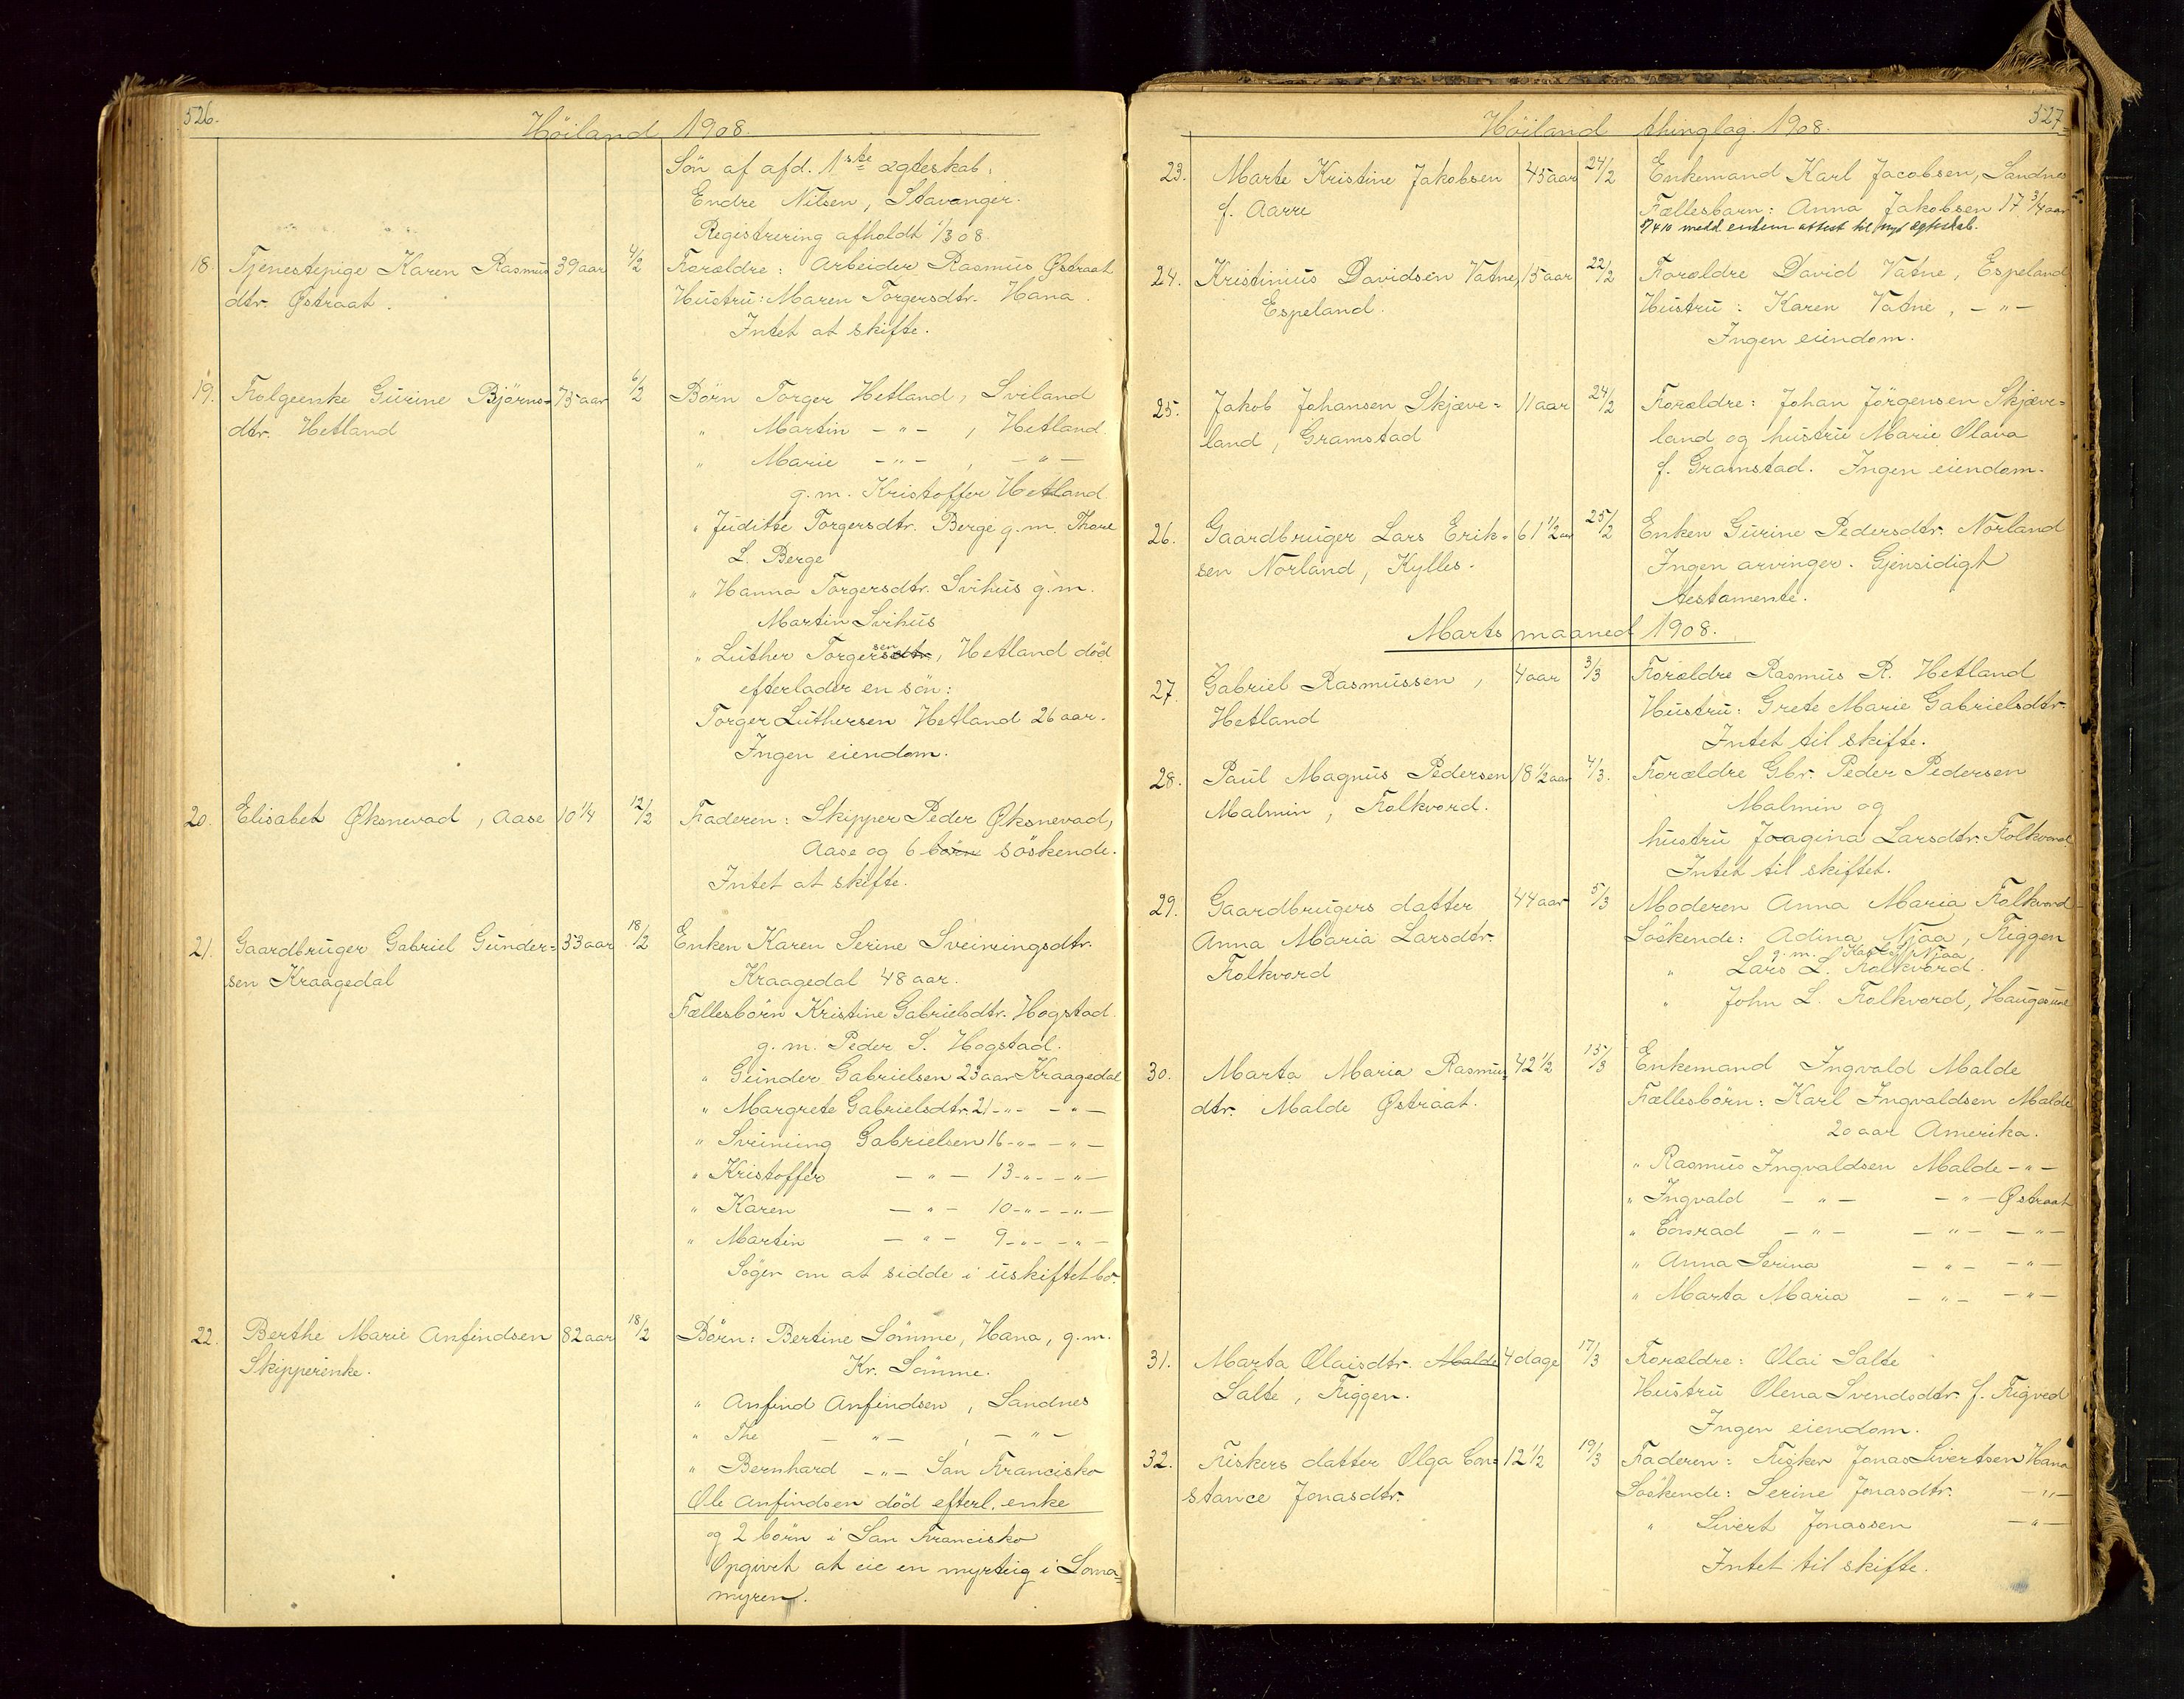 526.
Höiland 1908.
Søn af afd. 1ste ægteskab:
Endre Nilsen, Stavanger.
Registrering afholdt 1/3 08.
18. Tjenestepige Karen Rasmus 39 aar 4/2 Forældre: Arbeider Rasmus Østraat
dtr. Østraat. Hustru: Maren Torgersdtr. Hana.
Intet at skifte.
19. Folgeenke Gurine Bjørns- 75 aar 6/2 Børn Torger Hetland, Sviland
dtr. Hetland " Martin -"- , Hetland
" Marie -"- , -"-
g.m. Kristoffer Hetland
" Juditte Torgersdtr. Berge g.m. Thore
L. Berge
" Hanna Torgersdtr. Svihus g.m.
Martin Svihus
" Luther Torgersdtr. sen, Hetland död
efterlader en sön:
Torger Luthersen Hetland 26 aar.
Ingen eiendom.
20. Elisabet Øksnevad, Aase 10 1/4 12/2 Faderen: Skipper Peder Øksnevad,
Aase og 6 börn söskende.
Intet at skifte.
21. Gaardbruger Gabriel Gunder- 53 aar 18/2 Enken Karen Serine Sveiningsdtr.
sen Kraagedal Kraagedal 48 aar.
Fællesbörn Kristine Gabrielsdtr. Hogstad
g.m. Peder S. Hogstad.
" Gunder Gabrielsen 23 aar Kraagedal
" Margrete Gabrielsdtr. 21 -"- -"-
" Sveinung Gabrielsen 16 -"- -"-
" Kristoffer -"- 13 -"- -"-
" Karen -"- 10 -"- -"-
" Martin -"- 9 -"- -"-
Søger om at sidde i uskiftet bo.
22. Berthe Marie Anfindsen 82 aar 18/2 Børn: Bertine Sömme, Hana, g.m.
Skipperenke. Kr. Sömme.
" Anfind Anfindsen, Sandnes
" The -"- , -"-
" Bernhard -"- San Francisko
Ole Anfindsen död efterl. enke
og 2 börn i San Francisko
Opgivet at eie en myrteig i Soma-
myren.
527
Höiland thinglag 1908.
23. Marte Kristine Jakobsen 45 aar 24/2 Enkemand Karl Jacobsen, Sandnes
f. Aarre Fællesbarn: Anna Jakobsen 17 3/4 aar
9/4 10 medd enkem attest til nyt ægteskab.
24. Kristinius Davidsen Vatne, 15 aar 22/2 Forældre David Vatne, Espeland
Espeland. Hustru: Karen Vatne, -"-
Ingen eiendom.
25. Jakob Johansen Skjæve- 11 aar 24/2 Forældre: Johan Jörgensen Skjæve-
land, Gramstad land og hustru Marie Olava
f. Gramstad. Ingen eiendom.
26. Gaardbruger Lars Erik- 61 1/2 aar 25/2 Enken Gurine Pedersdtr. Norland
sen Norland, Kylles. Ingen arvinger. Gjensidigt
testamente.
Marts maaned 1908.
27. Gabriel Rasmussen, 4 aar 3/3 Forældre Rasmus R. Hetland
Hetland Hustru: Grete Marie Gabrielsdtr.
Intet til skifte.
28. Paul Magnus Pedersen 18 1/2 aar 4/3. Forældre Gbr. Peder Pedersen
Malmin, Folkvord. Malmin og
hustru Joagina Larsdtr. Folkvord
Intet til skiftet.
29. Gaardbrugers datter 44 aar 5/3 Moderen Anna Maria Folkvord
Anna Maria Larsdtr. Söskende: Adina Njaa, Figgen
Folkvord g.m. Njaa
" Lars L. Folkvord.
" John L. Folkvord, Haugesund
30. Marta Maria Rasmus- 42 1/2 15/3 Enkemand Ingvald Malde
dtr. Malde Østraat. Fællesbörn: Karl Ingvaldsen Malde
20 aar Amerika.
" Rasmus Ingvaldsen Malde -"-
" Ingvald -"- -"- Østraat
" Conrad -"- -"- -"-
" Anna Serina -"- -"-
" Marta Maria -"- -"-
31. Marta Olaisdtr. Malde 4 dage 17/3 Forældre: Olai Salte
Salte, Figgen. Hustru Olena Svendsdtr. f. Figved
Ingen eiendom.
32. Fiskers datter Olga Con- 12 1/2 19/3 Faderen: Fisker Jonas Sivertsen Hana
stance Jonasdtr. Söskende: Serine Jonasdtr. -"-
" Sivert Jonassen -"-
Intet til skifte.